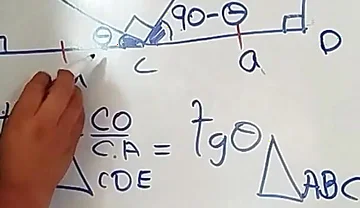 90-Θ
Θ
C a D
CO
C.A = TgΘ
CDE ABC